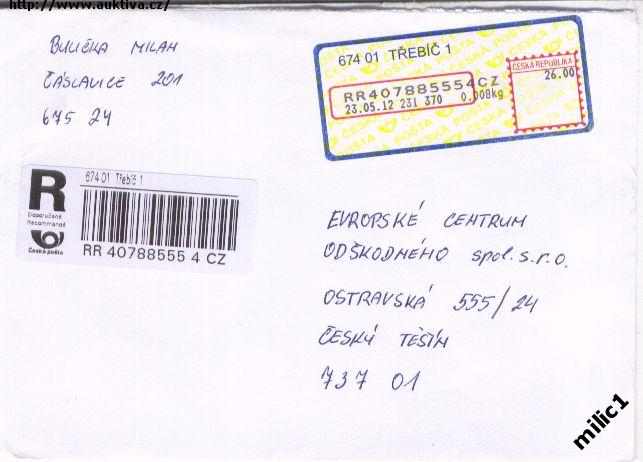 http://www.auktiva.cz/
BULIČKA MILAN
ČÁSLAVICE 201
675 24
674 01 TŘEBÍČ 1
RR407885554CZ
23.05.12 231 370 0.008kg
ČESKÁ REPUBLIKA
26.00
R
Doporučeně
Recommandé
Česká pošta
674 01 Třebíč 1
RR 40788555 4 CZ
EVROPSKÉ CENTRUM
ODŠKODNÉHO spol. s.r.o.
OSTRAVSKÁ 555/24
ČESKÝ TĚŠÍN
737 01
milic1